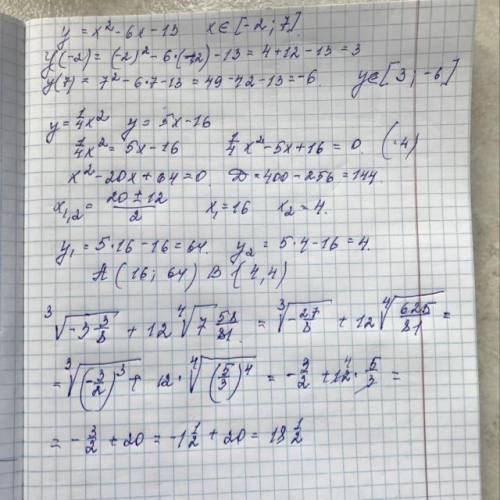 y = x² - 6x - 13    x ∈ [-2 ; 7]
y(-2) = (-2)² - 6·(-2) - 13 = 4 + 12 - 13 = 3
y(7) = 7² - 6·7 - 13 = 49 - 42 - 13 = -6    y∈[3 ; -6]
y = ¼x²    y = 5x - 16
¼x² = 5x - 16    ¼x² - 5x + 16 = 0    (·4)
x² - 20x + 64 = 0.    D = 400 - 256 = 144
x₁,₂ = (20 ± 12)/2    x₁ = 16    x₂ = 4.
y₁ = 5·16 - 16 = 64.    y₂ = 5·4 - 16 = 4.
A (16; 64)  B (4, 4)
∛(-3 3/8) + 12 ∜(7 58/81) = ∛(-27/8) + 12 ∜(625/81) =
= ∛((-3/2)³) + 12 · ∜((5/3)⁴) = -3/2 + 12 · 5/3 =
= -3/2 + 20 = -1 1/2 + 20 = 18 1/2